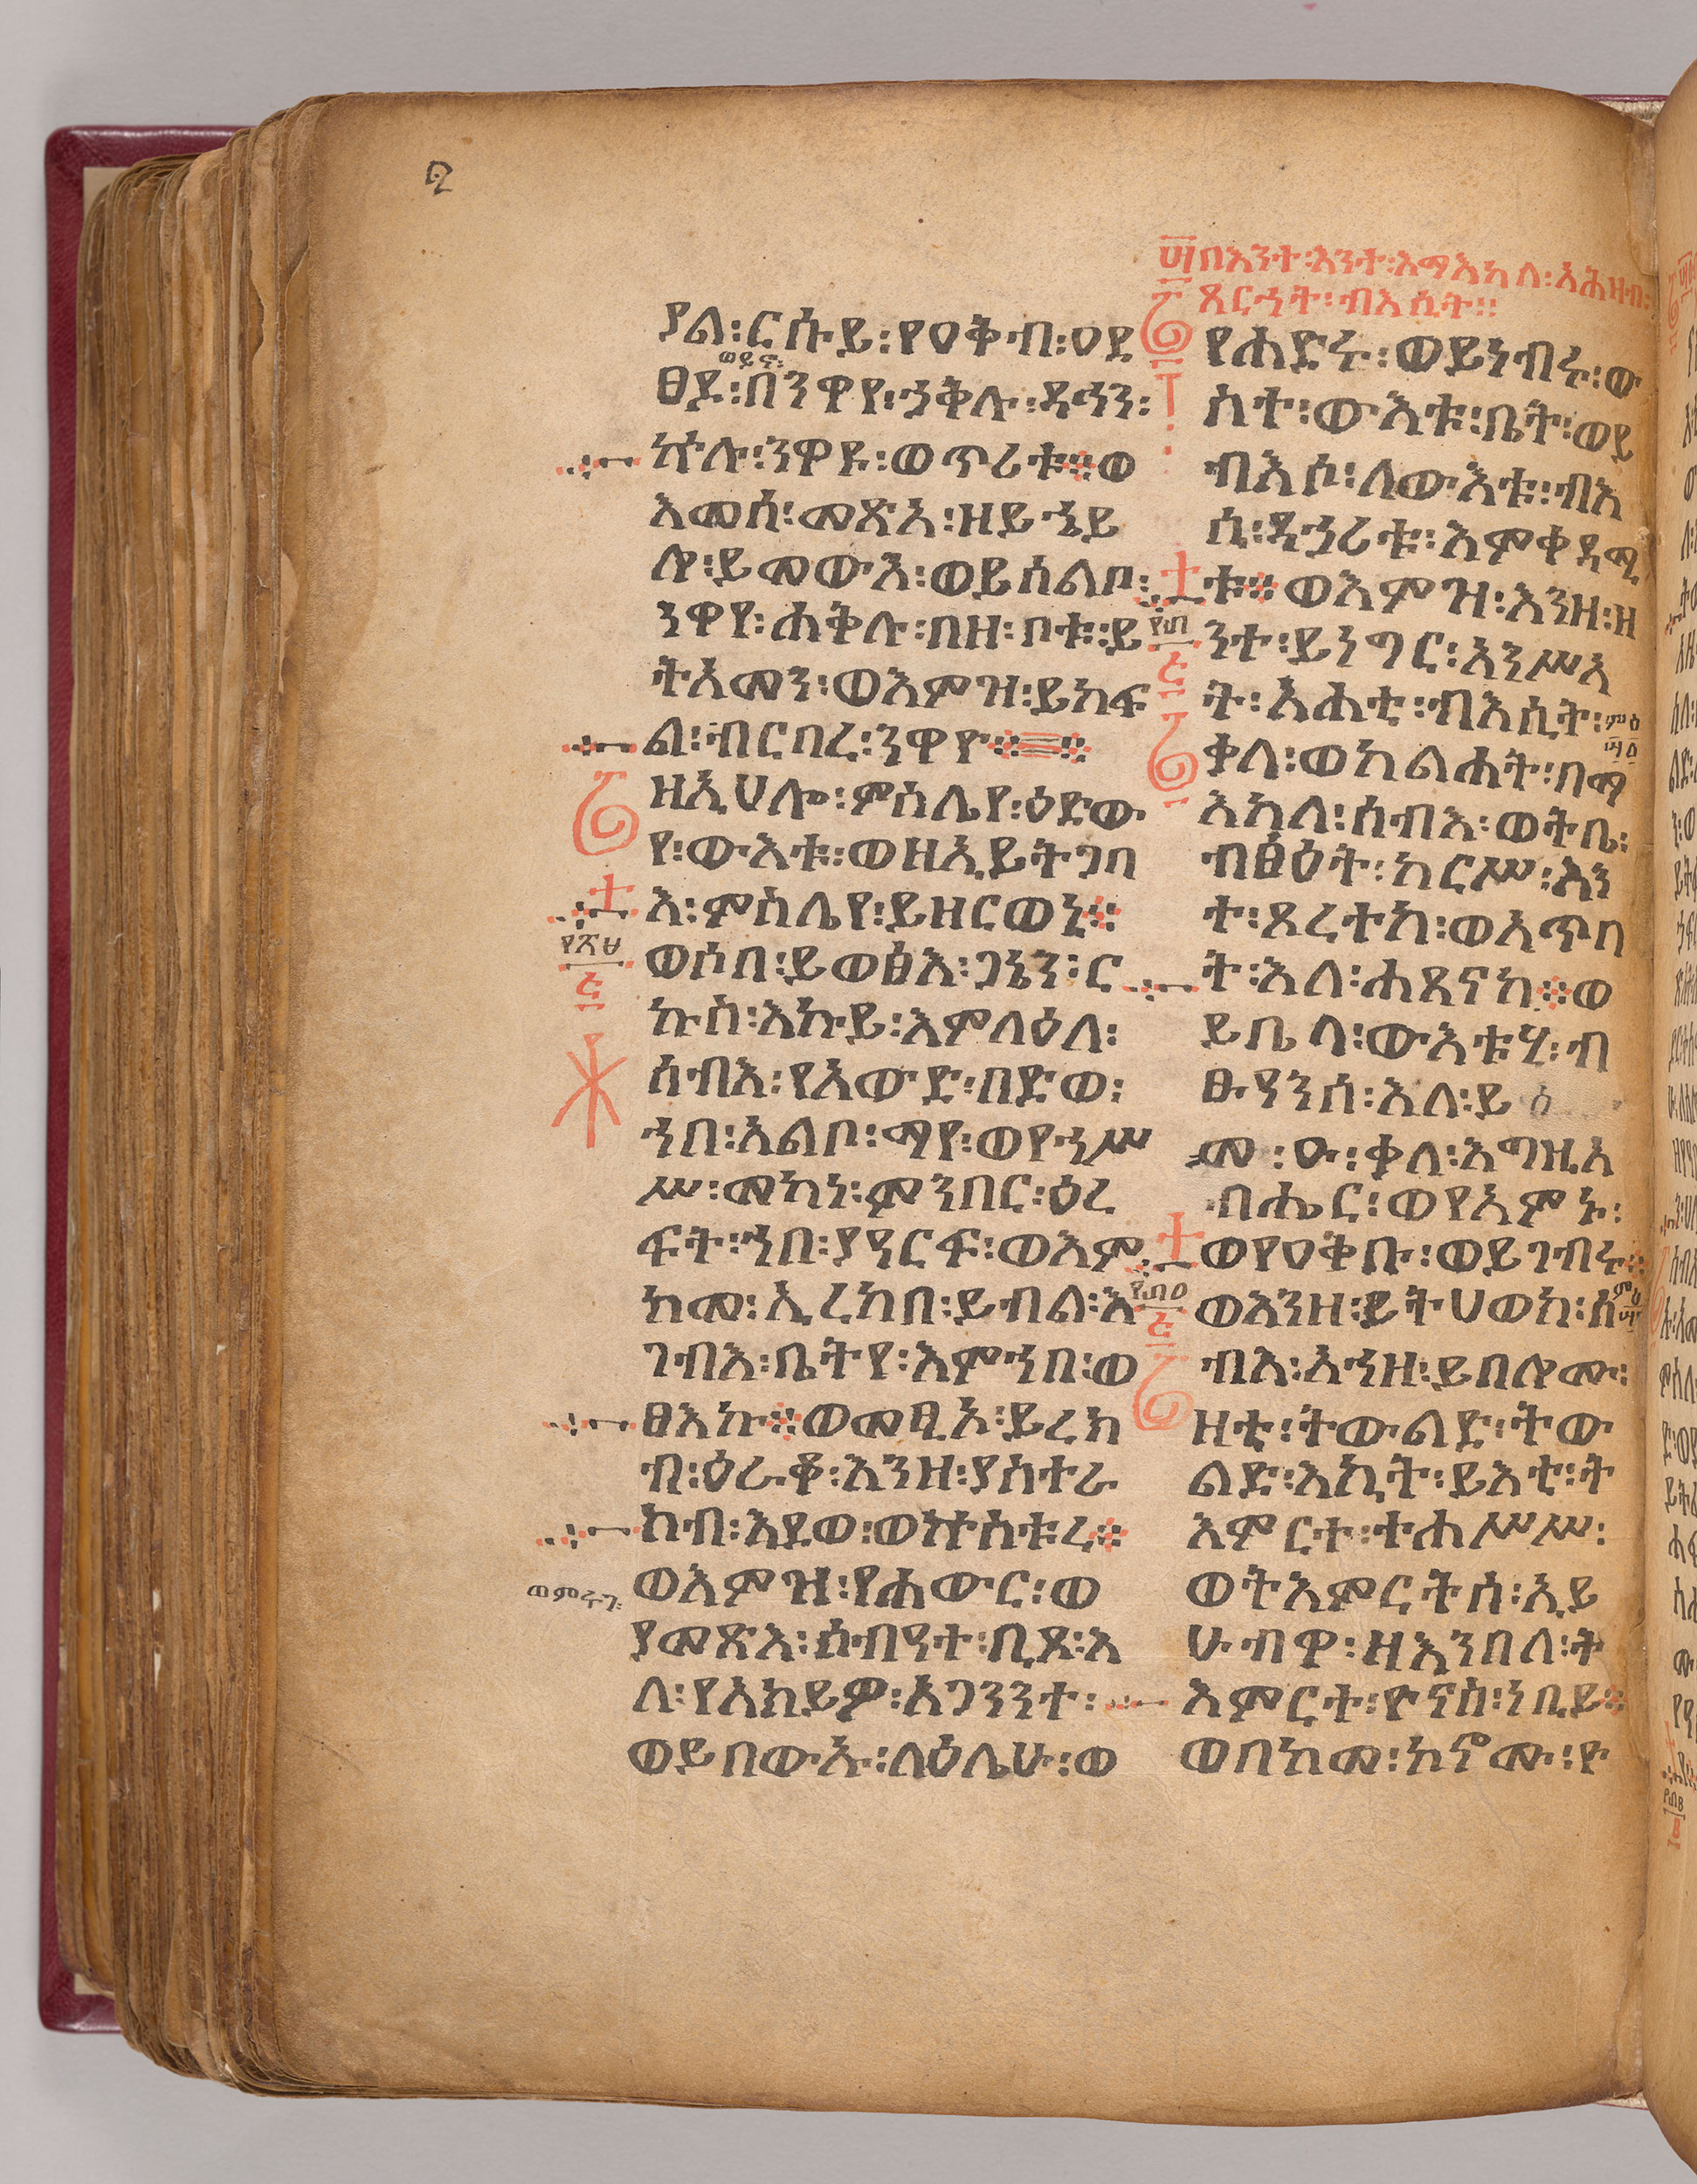 ያል፡ርሱይ፡የዐቅብ፡ዐደ
ወይኑ፡
ፀደ፡በንዋየ፡ኃቅሉ፡ዳኅን፡
ኵሉ፡ንዋዩ፡ወጥሪቱ፨ወ
እመሰ፡መጽአ፡ዘይኄይ
ሎ፡ይመውእ፡ወይሰልቦ፡
ንዋየ፡ሐቅሉ፡በዘ፡ቦቱ፡ይ
ትአመን፡ወእምዝ፡ይከፍ
ል፡ብርበረ፡ንዋዮ፨
ዘኢሀሎ፡ምስሌየ፡ዕድው
የ፡ውእቱ፡ወዘኢይትጋባ
እ፡ምስሌየ፡ይዘርወኒ፨
ወሶበ፡ይወፅእ፡ጋኔን፡ር
ኩስ፡እኩይ፡እምላዕለ፡
ሰብእ፡የአውድ፡በድወ፡
ኀበ፡አልቦ፡ማየ፡ወየኀሥ
ሥ፡መካነ፡ምንበር፡ዕረ
ፍት፡ኀበ፡ያዓርፍ፡ወእም
ከመ፡ኢረከበ፡ይብል፡እ
ገብእ፡ቤትየ፡እምኀበ፡ወ
ፀእኩ፨ወመፂኦ፡ይረክ
ብ፡ዕራቆ፡እንዘ፡ያስተራ
ክብ፡እደወ፡ወኅስቱረ፨
ወምሩገ፡
ወእምዝ፡የሐውር፡ወ
ያመጽእ፡ሰብዓተ፡ቢጾ፡እ
ለ፡የአክይዎ፡አጋንንተ፡
ወይበውኡ፡ላዕሌሁ፡ወ
፵ በእንተ፡እንተ፡እማእከለ፡አሕዛብ፡
ጸርኀት፡ብእሲት፡፡
የሐድሩ፡ወይነብሩ፡ው
ስተ፡ውእቱ፡ቤት፡ወይ
ብእሶ፡ለውእቱ፡ብእ
ሲ፡ደኃሪቱ፡እምቀዳሚ
ቱ፨ወእምዝ፡እንዘ፡ዘ
ንተ፡ይነግር፡አንሥአ
ት፡አሐቲ፡ብእሲት፡
ቃለ፡ወከልሐት፡በማ
እከለ፡ሰብእ፡ወትቤ፡
ብፅዕት፡ከርሥ፡እን
ተ፡ጾረተከ፡ወአጥባ
ት፡እለ፡ሐፀናከ፨ወ
ይቤላ፡ውእቱሂ፡ብ
ፁዓንሰ፡እለ፡ይ
ቃለ፡እግዚአ
ብሔር፡ወየአምኑ፡
ወየዐቅቡ፡ወይገብሩ፨
ወእንዘ፡ይትሀወክ፡ሰ
ብእ፡አኀዘ፡ይበሎሙ፡
ዛቲ፡ትውልድ፡ትው
ልድ፡እኪት፡ይእቲ፡ት
እምርተ፡ተሐሥሥ፡
ወትእምርትሰ፡ኢይ
ሁብዋ፡ዘእንበለ፡ት
እምርተ፡ዮናስ፡ነቢይ፨
ወበከመ፡ኮኖሙ፡ዮ